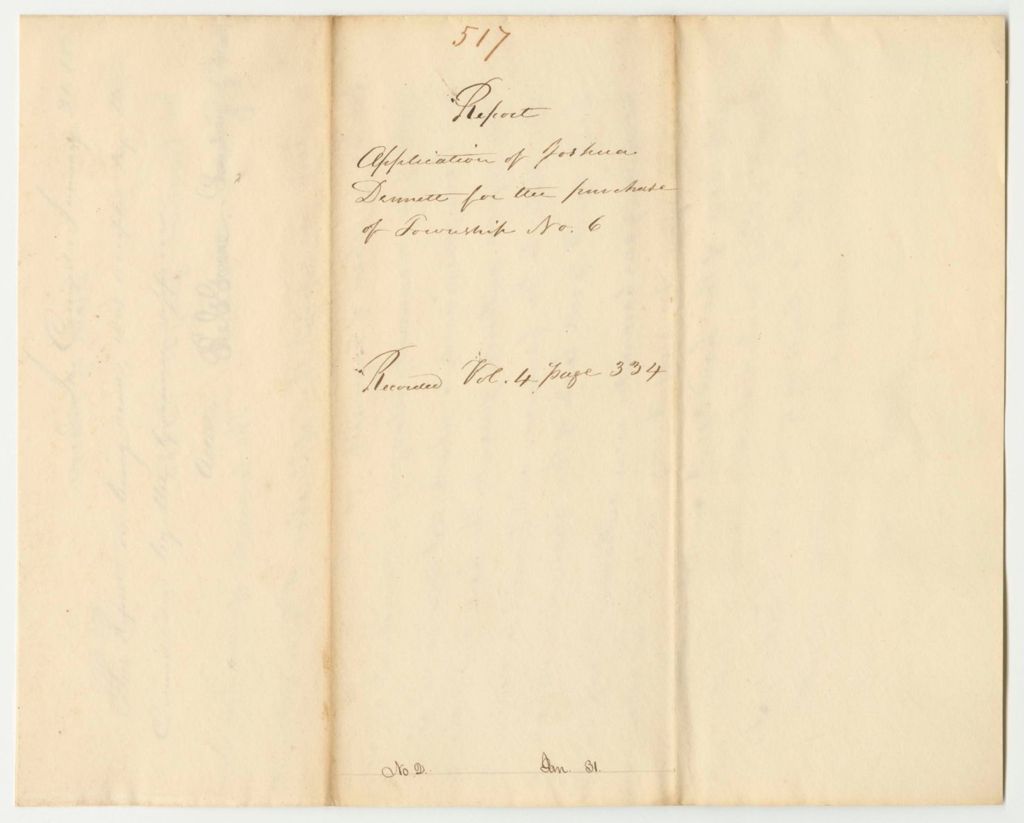 517
Report
Application of Joshua
Dennett for the purchase
of Township No. 6
Recorded Vol. 4 page 334
No D. Jan. 31.